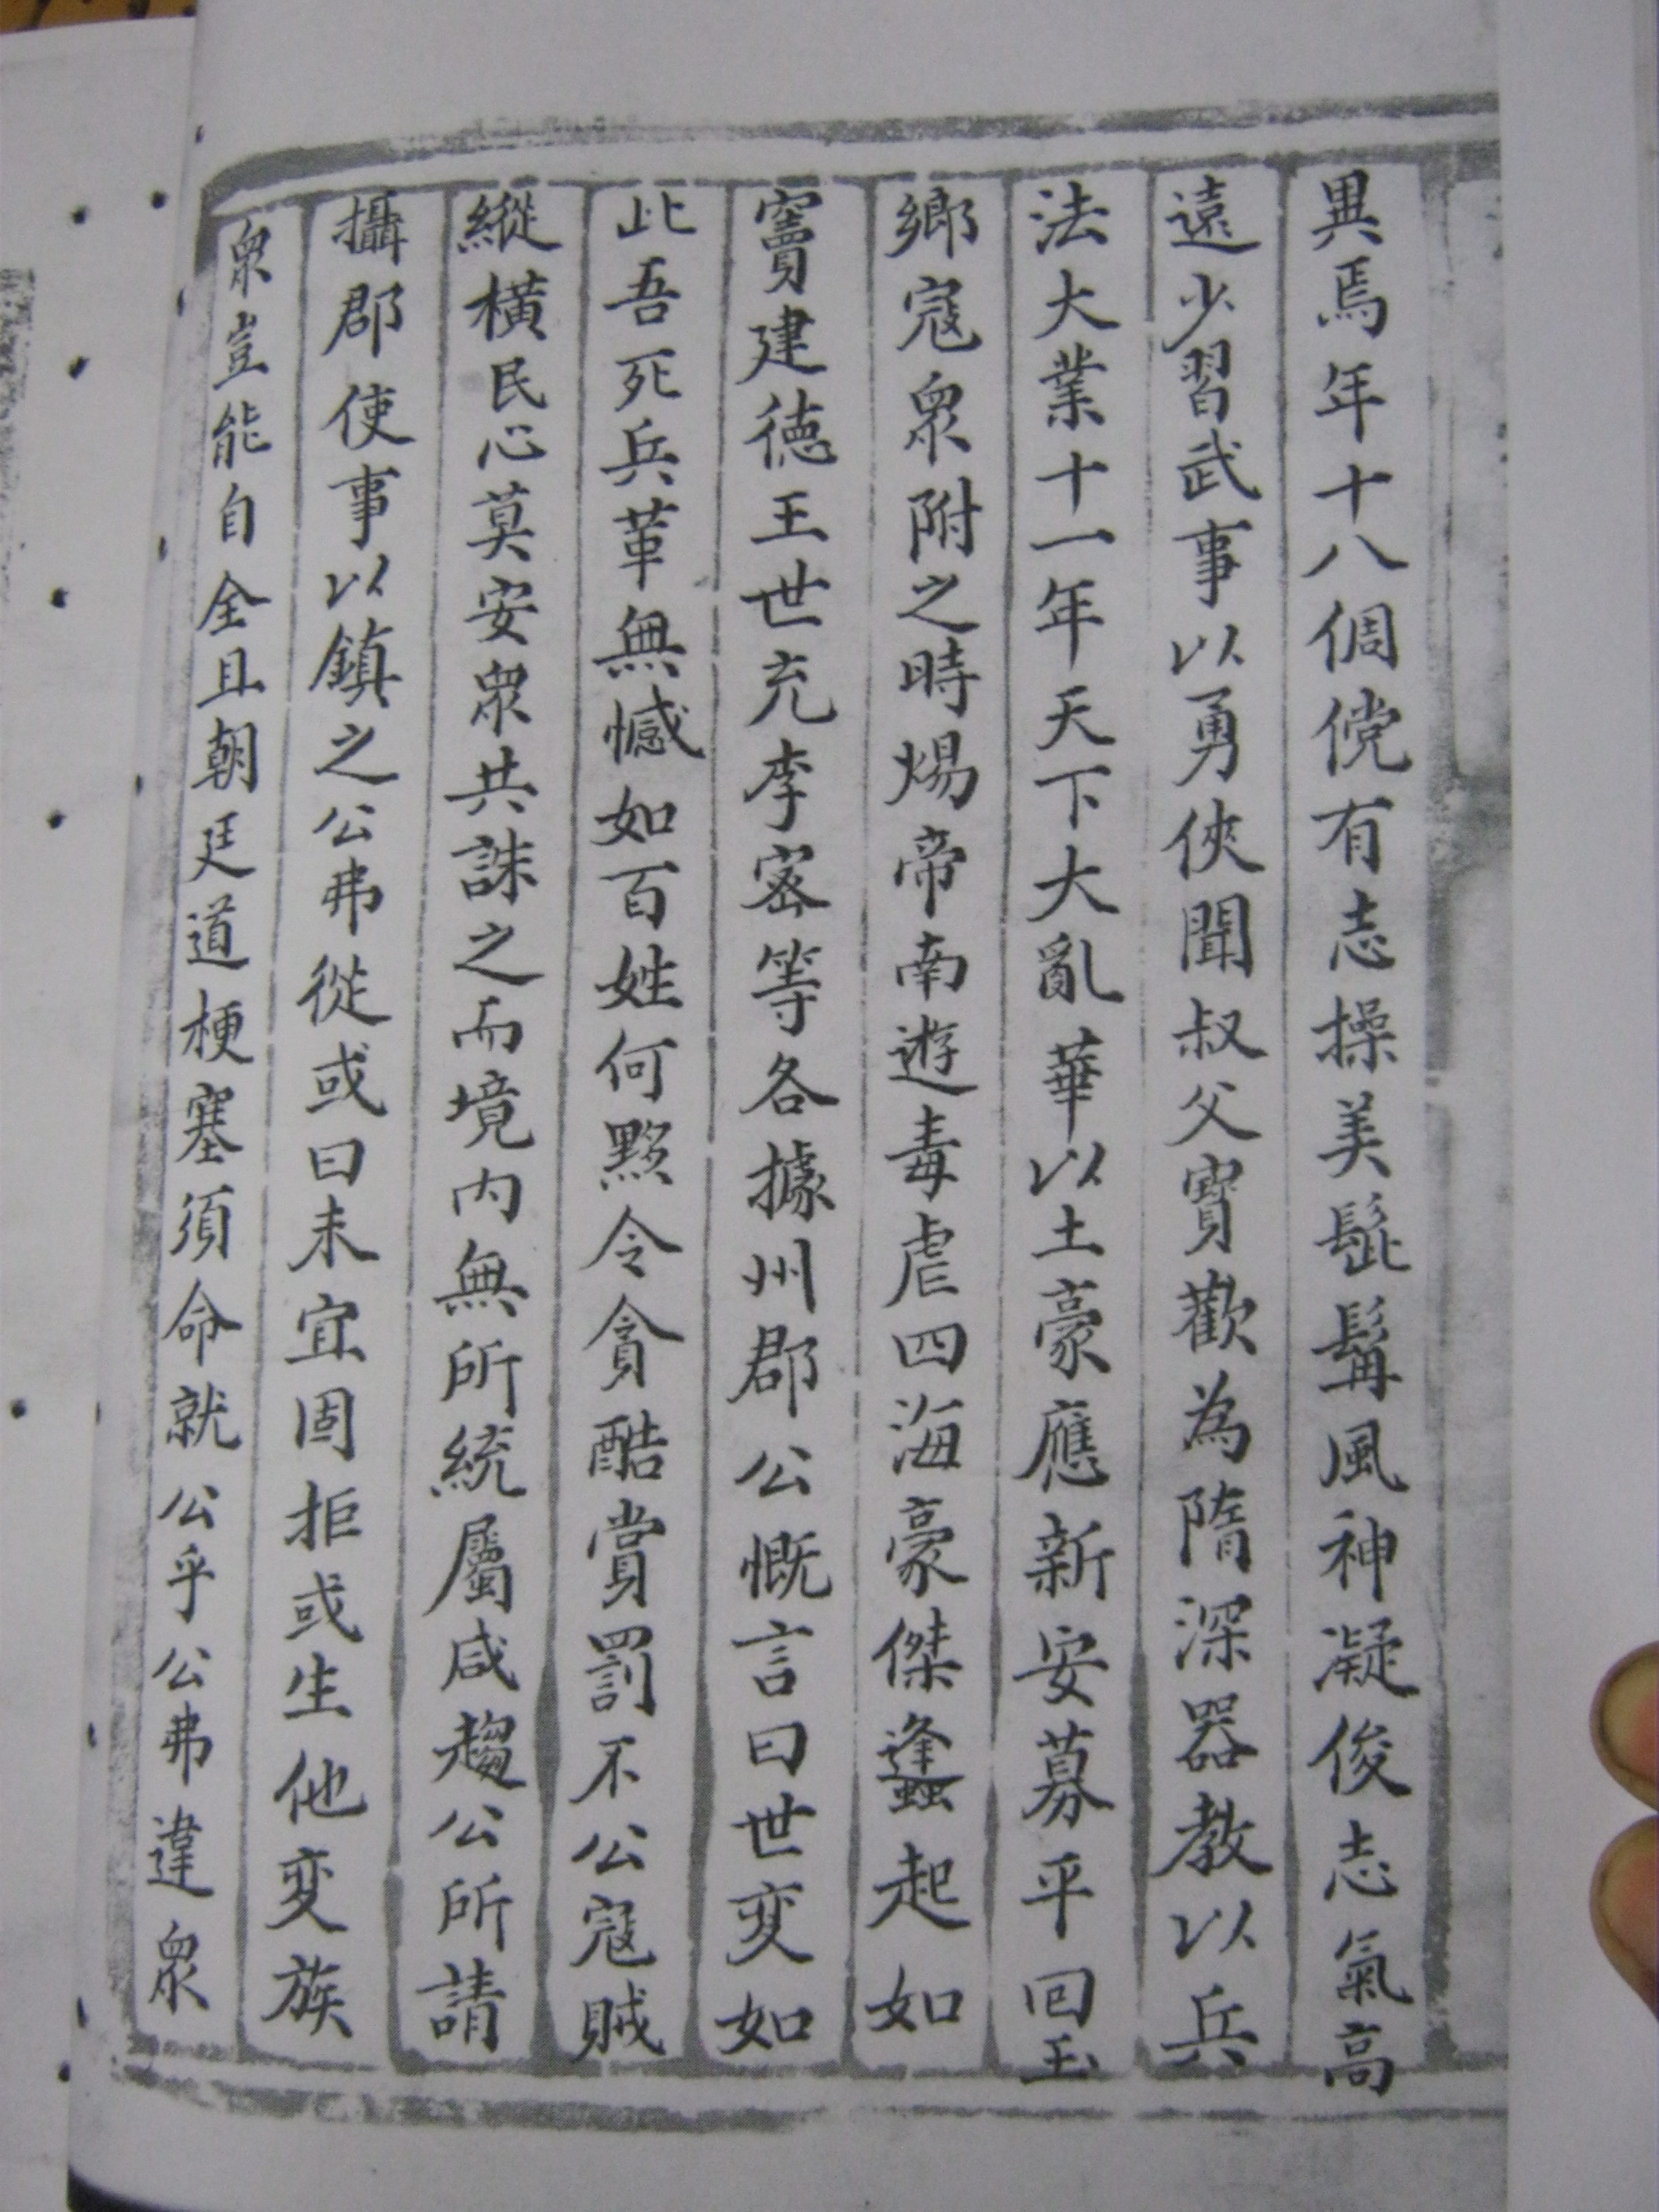 異焉年十八倜儻有志操美髭髯風神凝俊志氣高
遠少習武事以勇俠聞叔父寶歡為隋深器教以兵
法大業十一年天下大亂華以土豪應新安募平回玉
鄉寇眾附之時煬帝南遊毒虐四海豪傑蜂起如
竇建德王世充李密等各據州郡公慨言曰世変如
此吾死兵革無憾如百姓何黙令貪酷賞罰不公寇賊
縱橫民心莫安眾共誅之而境內無所統屬咸趨公所請
攝郡使事以鎮之公弗從或曰未宜固拒或生他変族
眾豈能自全且朝廷道梗塞須命就公乎公弗違眾